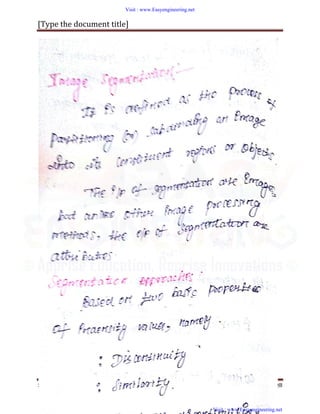 Visit : www.Easyengineering.net
[Type the document title]
Image Segmentation:-
It is defined as the process of
partitioning (or) sub-dividing an image
into its constituent regions or objects.
The i/p of segmentation are image,
but unlike other image processing
methods, the o/p of segmentation are
attributes.
Segmentation approaches:
Based on two basic properties
of intensity values, namely
: Discontinuity
: Similarity.